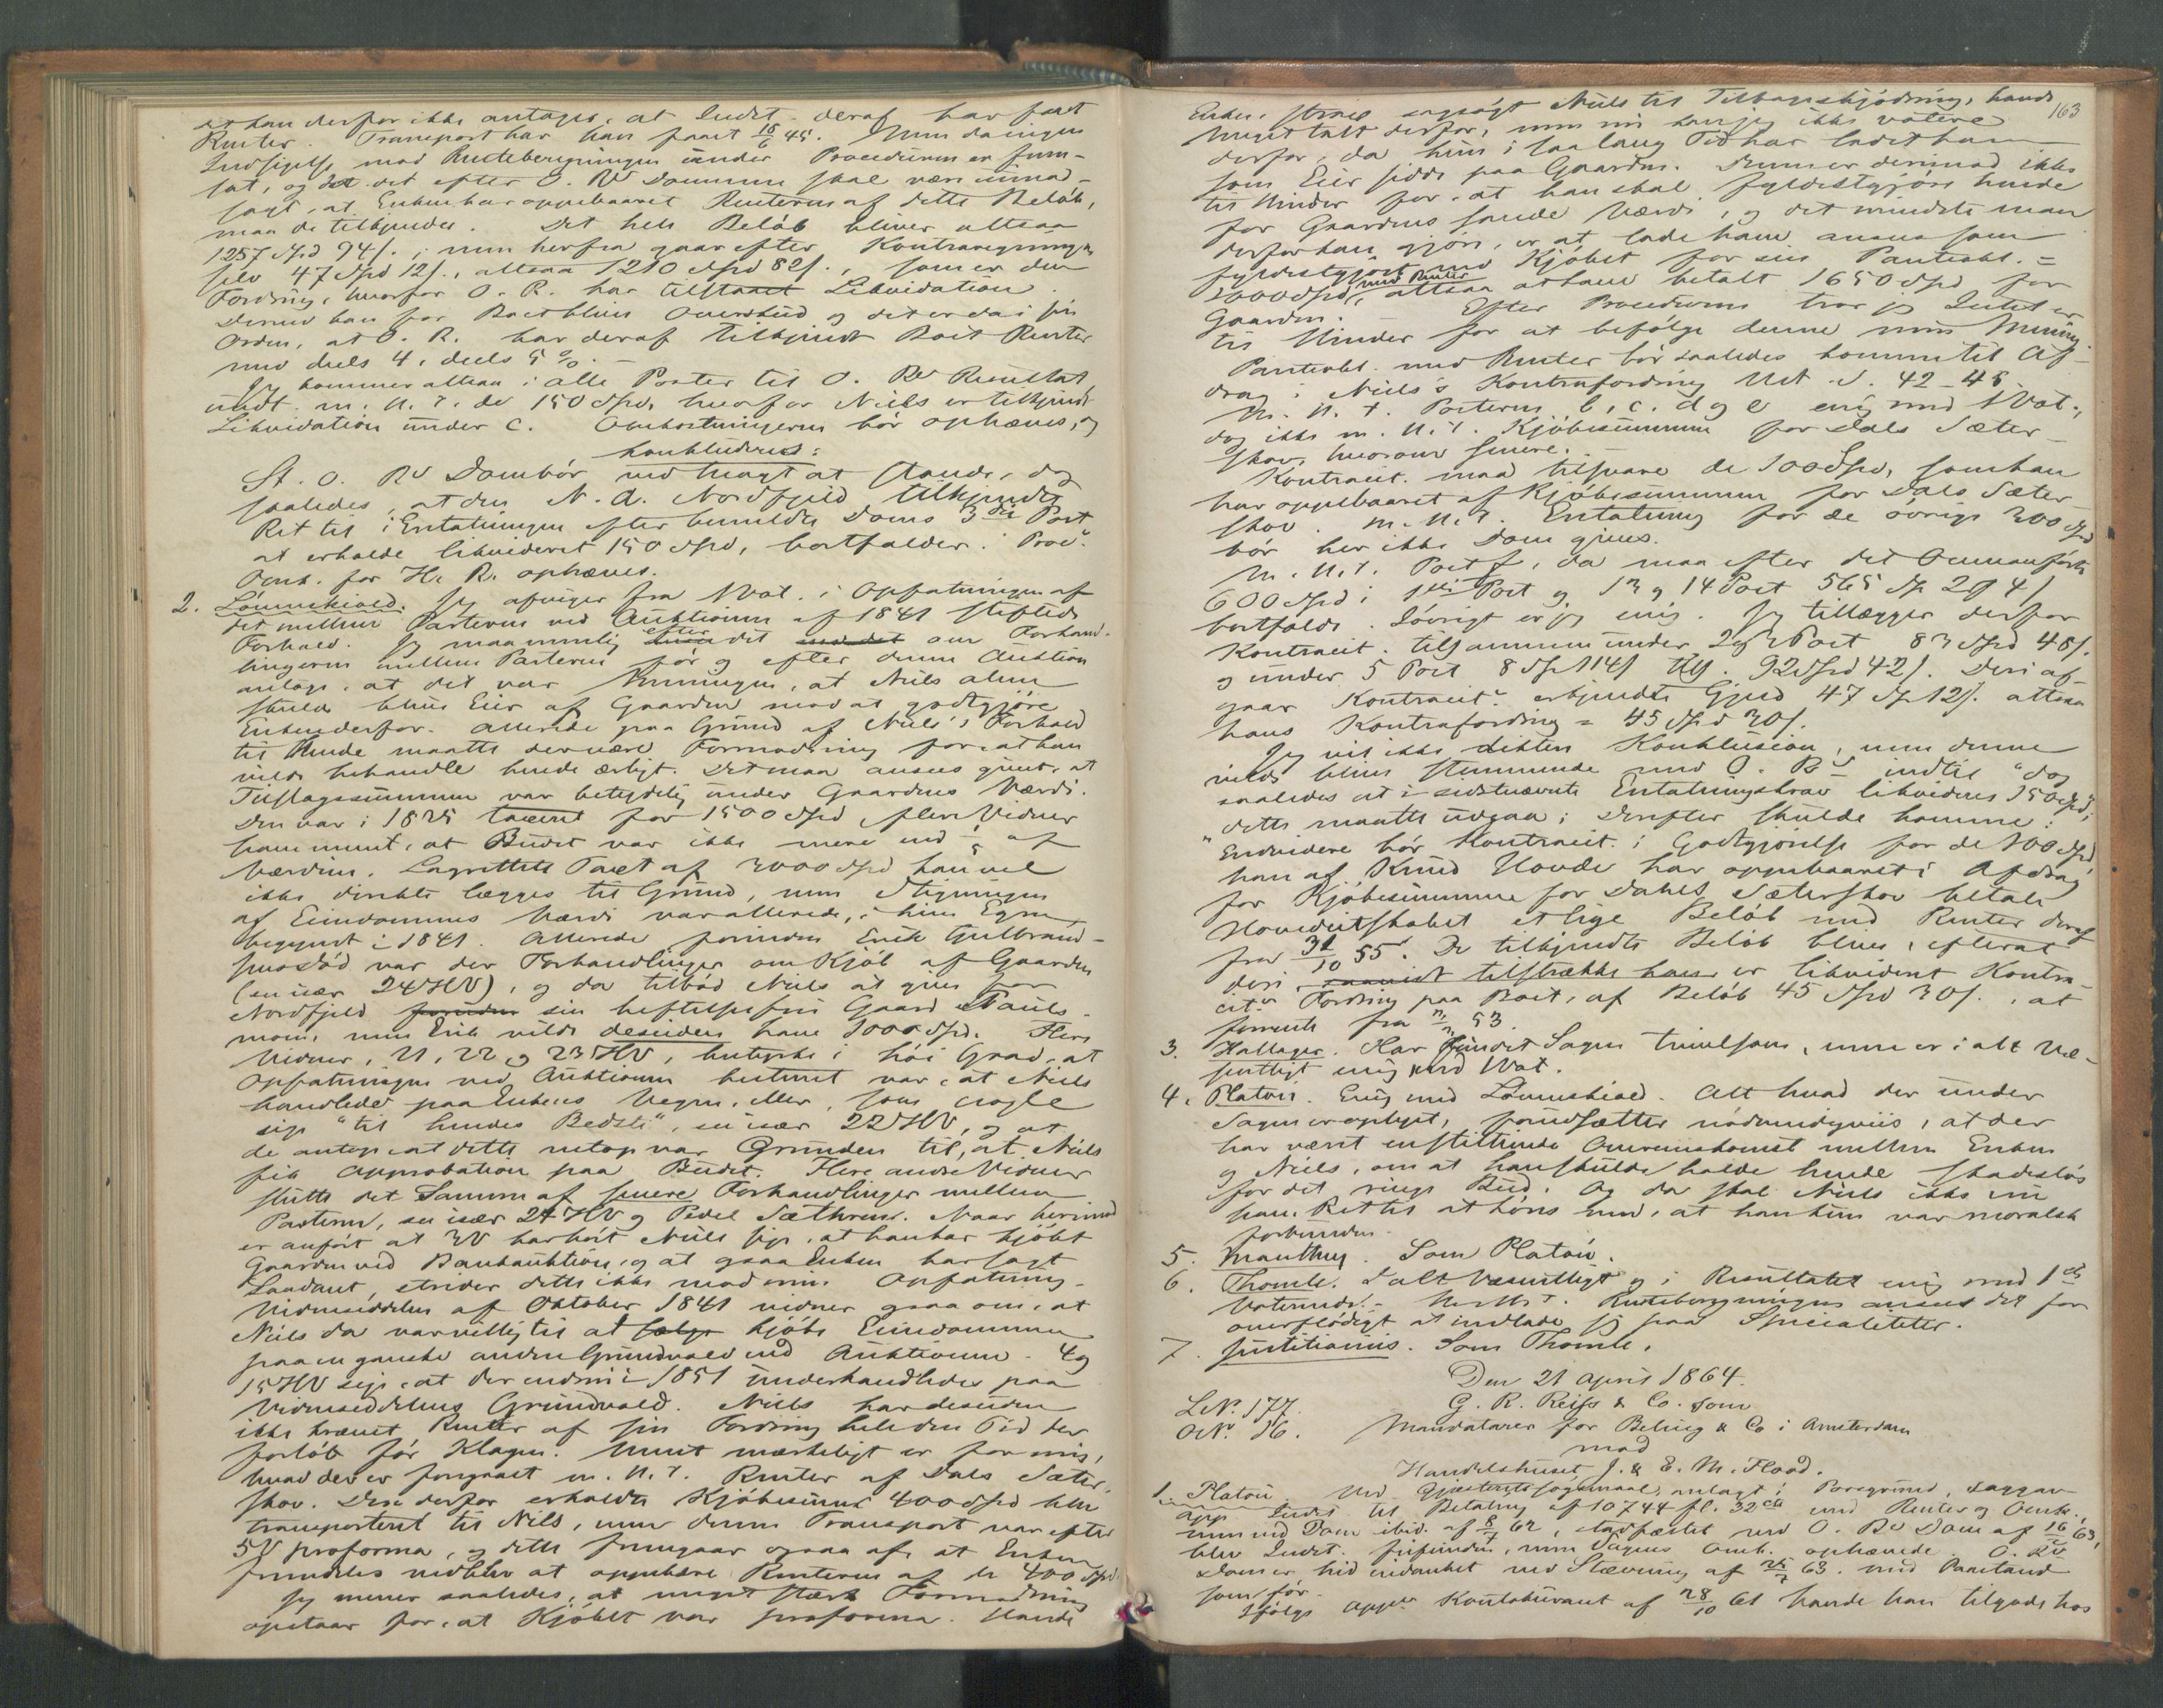 at han derfor ikke antages, at Indst. deraf har faaet
Renter. Transport har han faaet 16/6 45. Men da ingen
Indsigelse mod Renteberegningen under Proceduren er frem-
sat, og det efter O. Rs Dommen skal være uimod-
sagt, at Enken har oppebaaret Renterne af dette Beløb,
maa de tilkjendes. Det hele Beløb bliver altsaa
1257 Spd 94 s.; men herfra gaar efter Kontraregningen
selv 47 Spd 12 s., altsaa 1210 Spd 82 s., som er den
Fordring, hvorfor O. R. har tilstaaet Likvidation.
Derved kan for Boet blive Overskud og det er da i sin
Orden, at O. R. har deraf tilkjendt Boet Renter
med deels 4, deels 5 %.
Jeg kommer altsaa i alle Poster til O. Rs Resultat,
undt. m. H. t. de 150 Spd, hvorfor Niels er tilkjendt
Likvidation under C. Omkostningerne bør ophæves, og
konkluderes:
St. O. Rs Dom bør ved Magt at stande, dog
saaledes, at den N. A. Nordfjeld tilkjendte
Ret til i Erstatningen efter bemeldte Doms 3die Post
at erholde likvideret 150 Spd, bortfalder. Proc.
Omk. for H. R. ophæves.
2. Lønneskiold. Jeg afviger fra 1 Vot. i Opfatningen af
det mellem Parterne ved Auktionen af 1841 stiftede
Forhold. Jeg maa nemlig efter det om Forhand-
lingerne mellem Parterne før og efter denne Auktion
antage, at det var Meningen, at Niels alene
skulde blive Eier af Gaarden mod at godtgjøre
Enken derfor. Allerede paa Grund af Niels's Forhold
til hende maatte der være Formodning for, at han
vilde behandle hende ærligt. Det maa ansees givet, at
Tilslagssummen var betydelig under Gaardens Værdi.
Den var i 1825 taxeret for 1500 Spd, flere Vidner
have ment, at Budet var ikke mere end af
Værdien. Lagrettets Taxt af 3000 Spd kan vel
ikke direkte lægges til Grund, men Stigningen
af Eiendommens Værdi var allerede, i hiin Egn,
begyndt i 1841. Allerede forinden Erik Gulbrand-
sens Død var der Forhandlinger om Kjøb af Gaarden
(se især 24 HV), og da tilbød Niels at give for
Nordfjeld sin heftelsesfrie Gaard Pauls-
moen, men Erik vilde desuden have 1000 Spd. Flere
Vidner, 21, 22 og 23 HV, bestyrke i høi Grad, at
Opfatningen ved Auktionen bestemt var, at Niels
handlede paa Enkens Vegne, eller, som nogle
sige "til hendes Bedste", se især 22 HV, og at
de antage at dette netop var Grunden til, at Niels
fik Approbation paa Budet. Flere andre Vidner
slutte det Samme af senere Forhandlinger mellem
Parterne, se især 24 HV og Peder Sæthren. Naar herimod
er anført at 3 V har hørt Niels sige, at han har kjøbt
Gaarden ved Bankauktion, og at ogsaa Enken har sagt
Saadant, strider dette ikke mod min Opfatning.
Vidneseddelen af Oktober 1841 vidner ogsaa om, at
Niels da var villig til at kjøbe Eiendommen
paa en ganske anden Grundvold end Auktionen. 4 og
15 HV sige, at der endnu i 1851 underhandledes paa
Vidneseddelens Grundvold. Niels har desuden
ikke krævet Renter af sin Fordring hele den Tid der
forløb før Klagen. Meest mærkeligt er for mig,
hvad der er foregaaet m. H. t. Renter af Dals Sæter-
skov. Den derfor erholdte Kjøbesum 400 Spd blev
transporteret til Niels, men denne Transport var efter
5 V proforma, og dette fremgaar ogsaa af, at Enken
fremdeles vedblev at oppebære Renterne af de 400 Spd.
Jeg mener saaledes, at meget stærk Formodning
opstaar for, at Kjøbet var proforma. Havde
163
Enken strax sagsøgt Niels til Tilbageskjødning, havde
meget talt derfor, men nu kan jeg ikke votere
derfor, da hun i saa lang Tid har ladet ham
som Eier sidde paa Gaarden. Denne er derimod ikke
til Hinder for, at han skal fyldestgjøre hende
for Gaardens sande Værdi, og det mindste man
derfor kan gjøre, er at lade ham ansees som
fyldestgjort ved Kjøbet for sin Panteobl. =
1000 Spd med Renter, altsaa at have betalt 1650 Spd for
Gaarden. Efter Proceduren tror jeg Intet er
til Hinder for at befølge denne min Mening.
Panteobl. med Renter bør saaledes komme til Af-
drag i Niels's Kontrafordring Udt. S. 42-45.
M. H. t. Posterne b, c, d og e enig med 1 Vot.,
dog ikke m. H. t. Kjøbesummen for Dals Sæter-
skov, hvorom senere.
Kontracit. maa tilsvare de 100 Spd, som han
har oppebaaret af Kjøbesummen for Dals Sæter
skov. M. H. t. Erstatning for de øvrige 300 Spd
bør her ikke Dom gives.
M. H. t. Post f, da maa efter det Ovenanførte
600 Spd i 1ste Post og 13 og 14 Post 565 Sp 29 4/
bortfalde. Iøvrigt er jeg enig. Jeg tillægger derfor
Kontracit. tilsammen under 2 og 3 Post 83 Spd 48 s.
og under 5 Post 8 Sp 114 s tils. 92 Spd 42 s. Deri af-
gaar Kontracits erkjendte Gjeld 47 Sp 12 s. altsaa
hans Kontrafordring = 45 Spd 30 s.
Jeg vil ikke diktere Konklusion, men denne
vilde blive stemmende med O. Rs indtil "dog
saaledes at i sidstnævnte Erstatningskrav likvideres 150 Spd";
dette maatte udgaa; derefter skulde komme:
"Endvidere bør Kontracit. i Godtgjørelse for de 100 Spd
han af Knud Hovde har oppebaaret i Afdrag
for Kjøbesummen for Dahls Sæterskov betale
Hovedcitskabet et lige Beløb med Renter deraf
fra 31/10 55. De tilkjendte Beløb blive, efterat
deri er likvideret Kontra-
cits Fordring paa Boet, af Beløb 45 Spd 30 s., at
forrente fra 53.
3. Hallager. Har fundet Sagen tvivlsom, men er i alt Væ-
sentligt enig med 1 Vot.
4. Platou. Enig med Lønneskiold. Alt hvad der under
Sagen er oplyst, forudsætter nødvendigviis, at der
har været en stiltiende Overenskomst mellem Enken
og Niels, om at han skulde holde hende skadesløs
for det ringe Bud. Og da skal Niels ikke nu
have Ret til at lønne med, at han kun var moralsk
forbunden.
5. Manthey. Som Platou.
6. Thomle. I alt Væsentligt og i Resultatet enig med 1ste
Voterende. M. H. t. Renteberegningen ansees det for
overflødigt at indlade sig paa Specialiteter.
7. Justitiarius. Som Thomle.
Den 21 April 1864.
L.N. 177. G. R. Reiss & Co. som
O.N. 16. Mandatarer for Behrig & Co i Amsterdam
mod
Handelshuset J. & E. M. Flood.
1. Platou. Ved Gjesteretssøgsmaal, anlagt i Porsgrund, saggav
App. Indst. til Betaling af 10744 fl. 32 cts med Renter og Omk.,
men ved Dom ibid. af 8/7 62, stadfæstet ved O. Rs Dom af 16/ 63,
blev Indst. frifunden, men Sagens Omk. ophævede. O. Rs
Dom er hid indanket ved Stævning af 25/7 63. med Paastand
som før.
Ifølge Appts Kontokurant af 28/10 61 havde han tilgode hos